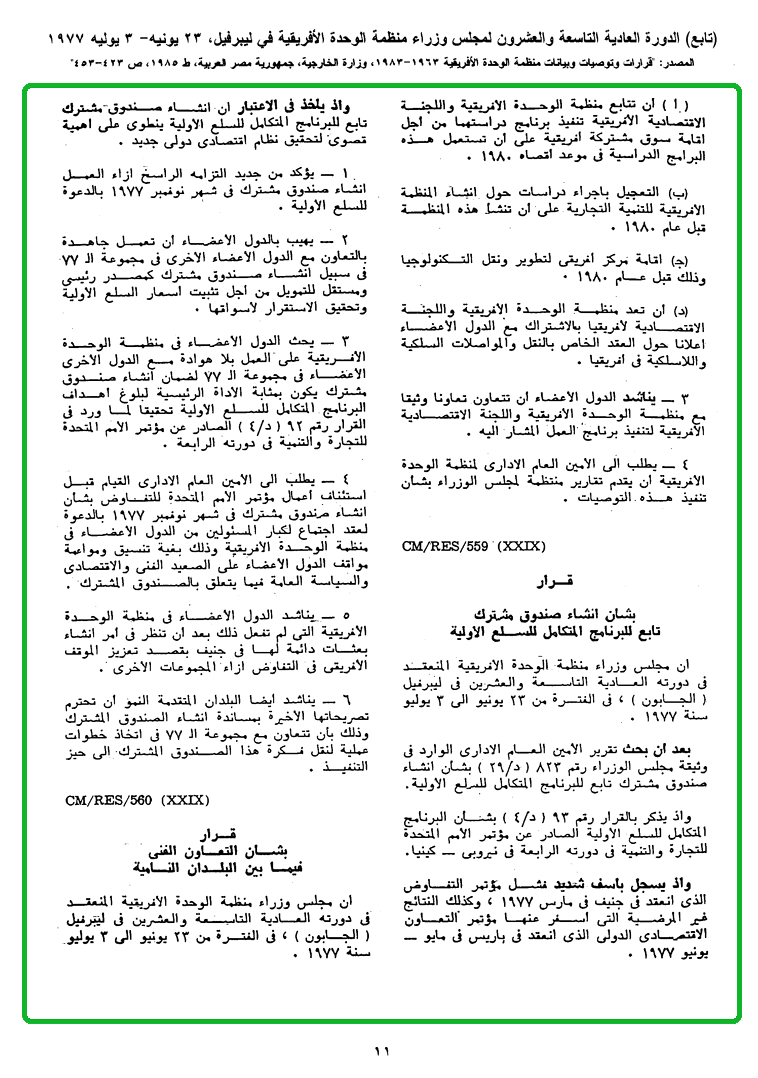 (تابع) الدورة العادية التاسعة والعشرون لمجلس وزراء منظمة الوحدة الأفريقية في ليبرفيل، ٢٣ يونيه- ٣ يوليه ١٩٧٧
المصدر: "قرارات وتوصيات وبيانات منظمة الوحدة الأفريقية ١٩٦٣-١٩٨٣، وزارة الخارجية، جمهورية مصر العربية، ط ١٩٨٥، ص ٤٢٣-٤٥٣"
( أ ) أن تتابع منظمة الوحدة الأفريقية واللجنة
الاقتصادية الأفريقية تنفيذ برنامج دراستهما من أجل
اقامة سوق مشتركة أفريقية على أن تستعمل هذه
البرامج الدراسية فى موعد اقصاه ١٩٨٠ .
(ب) التعجيل باجراء دراسات حول انشاء المنظمة
الأفريقية للتنمية التجارية على أن تنشط هذه المنظمة
قبل عام ١٩٨٠ .
(ج) اقامة مركز أفريقى لتطوير ونقل التكنولوجيا
وذلك قبل عام ١٩٨٠ .
(د) أن تعد منظمة الوحدة الأفريقية واللجنة
الاقتصادية لأفريقيا بالاشتراك مع الدول الأعضاء
اعلانا حول العقد الخاص بالنقل والمواصلات السلكية
واللاسلكية فى أفريقيا .
٣ ــ يناشد الدول الأعضاء أن تتعاون تعاونا وثيقا
مع منظمة الوحدة الأفريقية واللجنة الاقتصادية
الأفريقية لتنفيذ برنامج العمل المشار اليه .
٤ ــ يطلب الى الأمين العام الادارى لمنظمة الوحدة
الأفريقية أن يقدم تقارير منتظمة لمجلس الوزراء بشأن
تنفيذ هذه التوصيات .
CM/RES/559 (XXIX)
قرار
بشأن انشاء صندوق مشترك
تابع للبرنامج المتكامل للسلع الأولية
ان مجلس وزراء منظمة الوحدة الأفريقية المنعقد
فى دورته العادية التاسعة والعشرين فى ليبرفيل
( الجابون ) ، فى الفترة من ٢٣ يونيو الى ٣ يوليو
سنة ١٩٧٧ .
بعد أن بحث تقرير الأمين العام الادارى الوارد فى
وثيقة مجلس الوزراء رقم ٨٢٣ ( د/٢٩ ) بشأن انشاء
صندوق مشترك تابع للبرنامج المتكامل للسلع الأولية.
واذ يذكر بالقرار رقم ٩٣ ( د/٤ ) بشأن البرنامج
المتكامل للسلع الأولية الصادر عن مؤتمر الأمم المتحدة
للتجارة والتنمية فى دورته الرابعة فى نيروبى ــ كينيا.
واذ يسجل بأسف شديد فشل مؤتمر التفاوض
الذى انعقد فى جنيف فى مارس ١٩٧٧ ، وكذلك النتائج
غير المرضية التى أسفر عنها مؤتمر التعاون
الاقتصادى الدولى الذى انعقد فى باريس فى مايو ــ
يونيو ١٩٧٧ .
واذ يأخذ فى الاعتبار أن انشاء صندوق مشترك
تابع للبرنامج المتكامل للسلع الأولية ينطوى على أهمية
قصوى لتحقيق نظام اقتصادى دولى جديد .
١ ــ يؤكد من جديد التزامه الراسخ ازاء العمل
انشاء صندوق مشترك فى شهر نوفمبر ١٩٧٧ بالدعوة
للسلع الأولية .
٢ ــ يهيب بالدول الأعضاء أن تعمل جاهدة
بالتعاون مع الدول الأعضاء الأخرى فى مجموعة الـ ٧٧
فى سبيل انشاء صندوق مشترك كمصدر رئيسى
ومستقل للتمويل من أجل تثبيت أسعار السلع الأولية
وتحقيق الاستقرار لأسواقها .
٣ ــ يحث الدول الأعضاء فى منظمة الوحدة
الأفريقية على العمل بلا هوادة مع الدول الأخرى
الأعضاء فى مجموعة الـ ٧٧ لضمان انشاء صندوق
مشترك يكون بمثابة الأداة الرئيسية لبلوغ أهداف
البرنامج المتكامل للسلع الأولية تحقيقا لما ورد فى
القرار رقم ٩٢ ( د/٤ ) الصادر عن مؤتمر الأمم المتحدة
للتجارة والتنمية فى دورته الرابعة .
٤ ــ يطلب الى الأمين العام الادارى القيام قبل
استئناف أعمال مؤتمر الأمم المتحدة للتفاوض بشأن
انشاء صندوق مشترك فى شهر نوفمبر ١٩٧٧ بالدعوة
لعقد اجتماع لكبار المسئولين من الدول الأعضاء فى
منظمة الوحدة الأفريقية وذلك بغية تنسيق ومواءمة
مواقف الدول الأعضاء على الصعيد الفنى والاقتصادى
والسياسة العامة فيما يتعلق بالصندوق المشترك .
٥ ــ يناشد الدول الأعضاء فى منظمة الوحدة
الأفريقية التى لم تفعل ذلك بعد أن تنظر فى أمر انشاء
بعثات دائمة لها فى جنيف بقصد تعزيز الموقف
الأفريقى فى التفاوض ازاء المجموعات الأخرى .
٦ ــ يناشد أيضا البلدان المتقدمة النمو أن تحترم
تصريحاتها الأخيرة بمساندة انشاء الصندوق المشترك
وذلك بأن تتعاون مع مجموعة الـ ٧٧ فى اتخاذ خطوات
عملية لنقل فكرة هذا الصندوق المشترك الى حيز
التنفيذ .
CM/RES/560 (XXIX)
قرار
بشأن التعاون الفنى
فيما بين البلدان النامية
ان مجلس وزراء منظمة الوحدة الأفريقية المنعقد
فى دورته العادية التاسعة والعشرين فى ليبرفيل
( الجابون ) ، فى الفترة من ٢٣ يونيو الى ٣ يوليو
سنة ١٩٧٧ .
١١